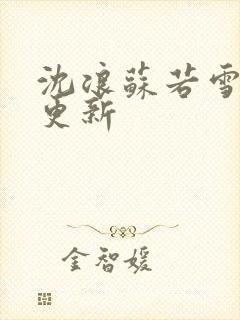 沈浪蘇若雪
更新
金智媛